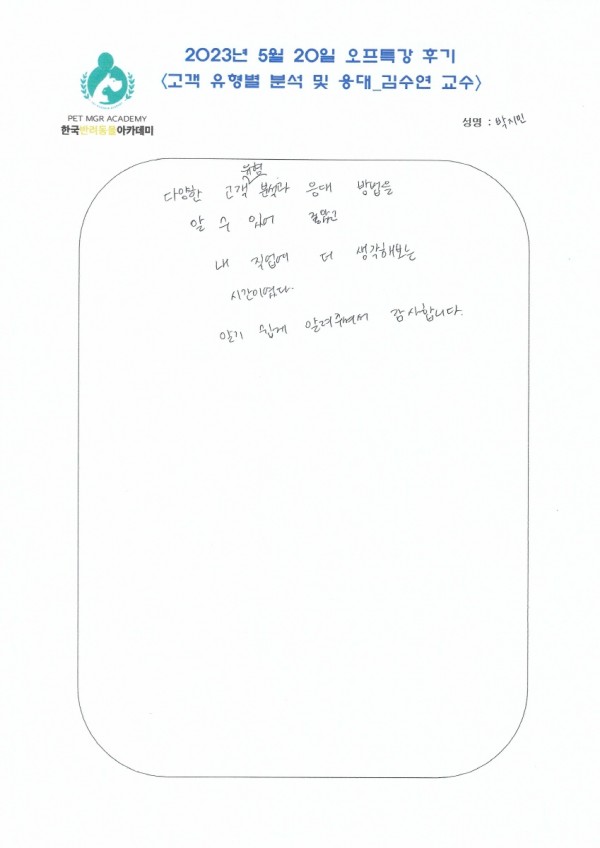 2023년 5월 20일 오프특강 후기
<고객 유형별 분석 및 응대_김수연 교수>
PET MGR ACADEMY
한국반려동물아카데미
성명 : 박지민
유형
다양한 고객 분석과 응대 방법을
알 수 있어 좋았고
내 직업에 더 생각해보는
시간이였다.
알기 쉽게 알려주셔서 감사합니다.